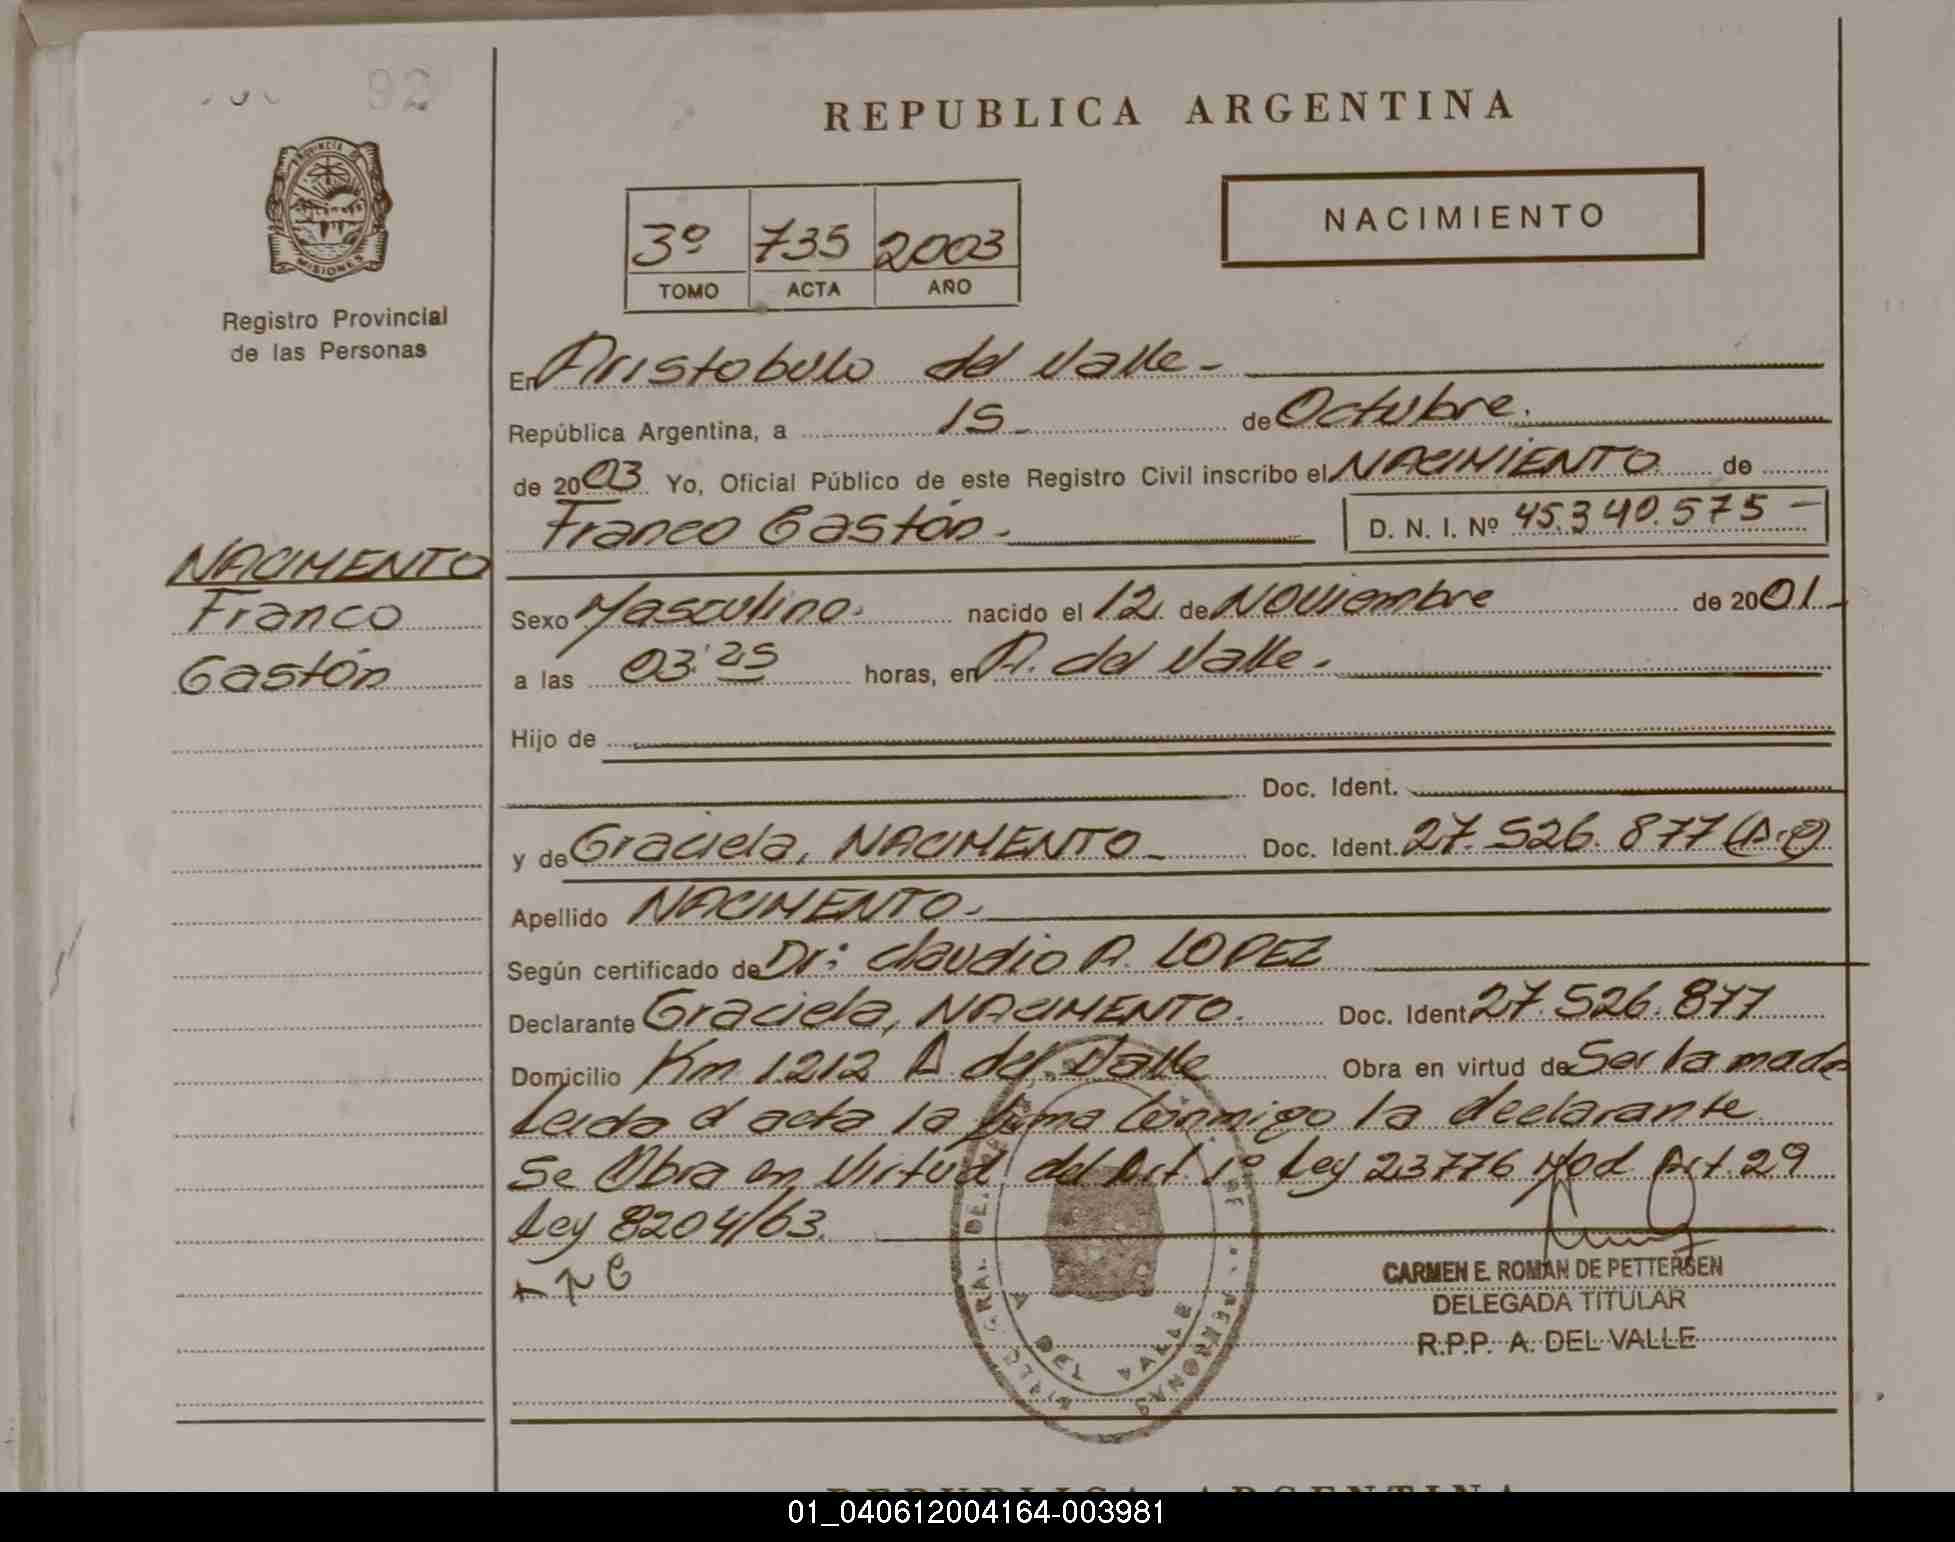 92
REPUBLICA ARGENTINA
PROVINCIA DE
MISIONES
Registro Provincial
de las Personas
3º 735 2003
TOMO ACTA AÑO
NACIMIENTO
En Aristobulo del Valle-
República Argentina, a 15- de Octubre.
de 2003 Yo, Oficial Público de este Registro Civil inscribo el NACIMIENTO de
Franco Gastón.- D. N. I. Nº 45.340.575-
NACIMENTO
Franco
Gastón
Sexo Masculino. nacido el 12. de Noviembre de 2001-
a las 03:25 horas, en A. del Valle.
Hijo de
Doc. Ident.
y de Graciela, NACIMENTO- Doc. Ident. 27.526.877
Apellido NACIMENTO.
Según certificado de Dr: Claudio A. LOPEZ
Declarante Graciela, NACIMENTO. Doc. Ident 27.526.877
Domicilio Km 1212 A del Valle Obra en virtud de Ser la madre
Leida el acta la firma conmigo la declarante
Se Obra en Virtud del Art. 1º Ley 23776 Mod. Art. 29
Ley 8204/63.
CARMEN E. ROMAN DE PETTERSEN
DELEGADA TITULAR
R.P.P. A. DEL VALLE
A DEL VALLE
REPUBLICA ARGENTINA
01_040612004164-003981